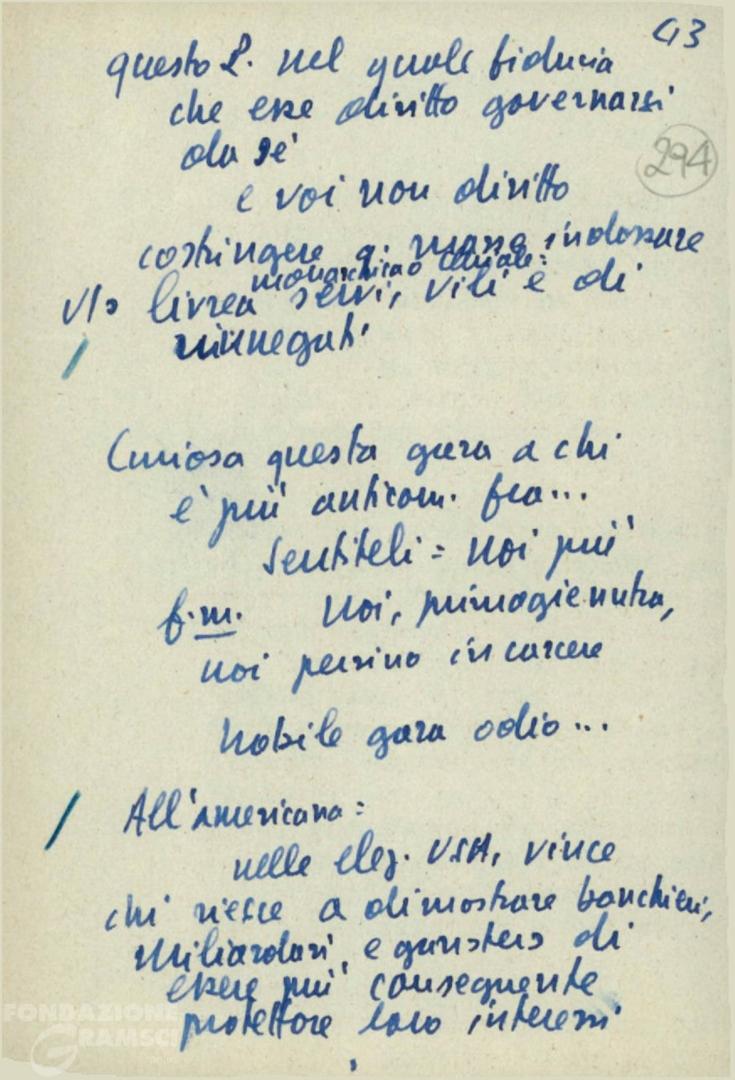 43
questo P. nel quale fiducia
che esse diritto governarsi
da sé
294
e voi non diritto
costringere q. masse indossare
monarchica o clericale:
V/s livrea servi, vili e di
rinnegati
Curiosa questa gara a chi
è più anticom. fra...
Sentiteli: noi più
f.m. noi, primogienutra,
noi persino in carcere
Nobile gara odio...
All'americana:
nelle elez. USA, vince
chi riesce a dimostrare banchieri,
miliardari, e gansters di
essere più conseguente
protettore loro interessi
FONDAZIONE
GRAMSCI